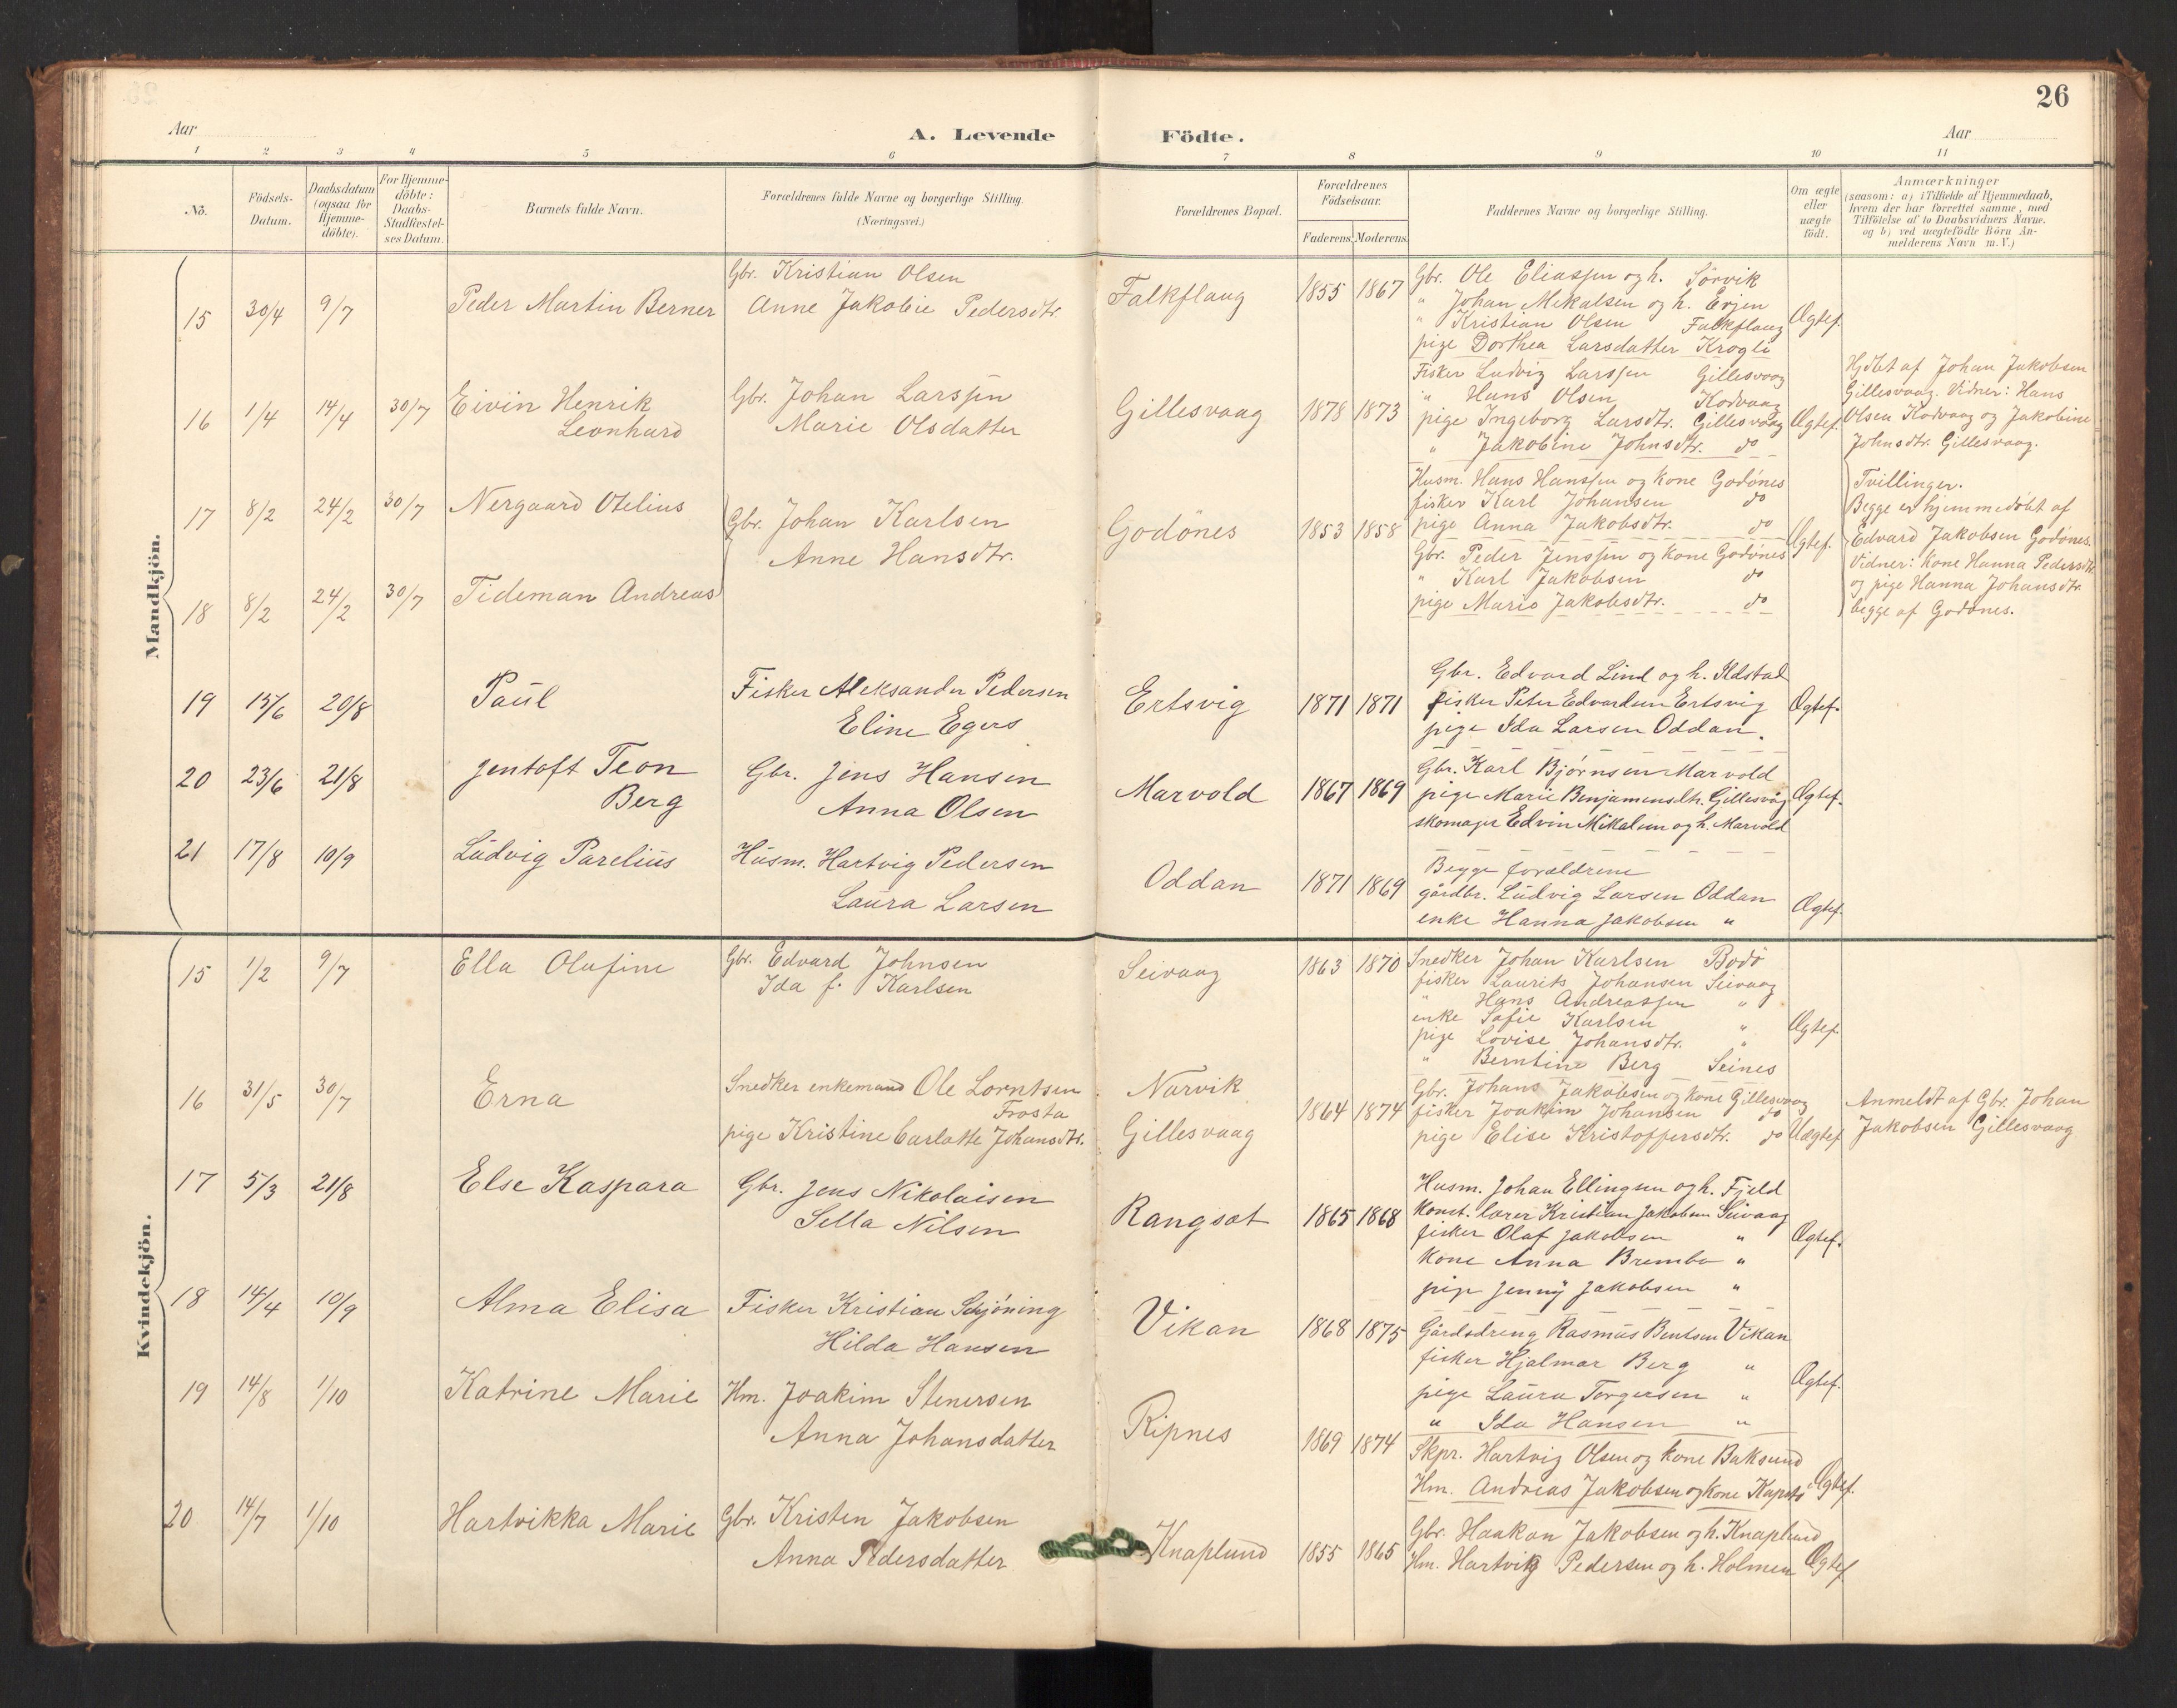 26
Aar
A. Levende Födte.
Aar
1 2 3 4 5 6 7 8 9 10 11
No.
Födsels-
Datum.
Daabsdatum
(ogsaa for
Hjemme-
döbte).
For Hjemme-
döbte:
Daabs-
Stadfæstel-
ses Datum.
Barnets fulde Navn.
Forældrenes fulde Navne og borgerlige Stilling.
(Næringsvei.)
Forældrenes Bopæl.
Forældrenes
Födselsaar.
Faderens. Moderens.
Faddernes Navne og borgerlige Stilling.
Om ægte
eller
uægte
födt.
Anmærkninger
(saasom: a) i Tilfælde af Hjemmedaab,
hvem der har forrettet samme, med
Tilföielse af to Daabsvidners Navne.
og b) ved uægtefödte Börn An-
melderens Navn m. V.)
Mandkjön.
15 30/4 9/7 Peder Martin Berner
Gbr. Kristian Olsen
Anne Jakobie Pedersdtr
Falkflaug 1855 1867
Gbr. Ole Eliassen og h. Sörvik
" Johan Mikalsen og h. Evjen
" Kristian Olsen Falkflaug
pige Dorthea Larsdatter Krogli
Ægtef.
16 1/4 14/4 30/7 Eivin Henrik
Leonhard
Gbr. Johan Larssen
Marie Olsdatter
Gillesvaag 1878 1873
Fisker Ludvig Larssen Gillesvaag
" Hans Olsen Kodvaag
pige Ingeborg Larsdtr. Gillesvaag
" Jakobine Johnsdtr. do
Ægtef.
Hjdbt af Johan Jakobsen
Gillesvaag. Vidner: Hans
Olsen Kodvaag og Jakobine
Johnsdtr. Gillesvaag.
17 8/2 24/2 30/7 Nergaard Otelius
Gbr. Johan Karlsen
Anne Hansdtr.
Godönes 1853 1858
Husm. Hans Hanssen og kone Godönes
fisker Karl Johansen do
pige Anna Jakobsdtr. do
Ægtef.
Tvillinger.
Begge er hjemmedöbt af
Edvard Jakobsen Godönes.
Vidner: Kone Hanna Pedersdtr.
og pige Hanna Johansdtr.
begge af Godönes.
18 8/2 24/2 30/7 Tideman Andreas
Gbr. Peder Jenssen og kone Godönes
" Karl Jakobsen do
pige Marie Jakobsdtr. do
19 15/6 20/8 Paul
Fisker Aleksander Pedersen
Eline Egers
Ertsvig 1871 1871
Gbr. Edvard Lind og h. Ildstad
fisker Peter Edvardsen Ertsvig
pige Ida Larsen Oddan.
Ægtef.
20 23/6 21/8 Jentoft Teon
Berg
Gbr. Jens Hansen
Anna Olsen
Marvold 1867 1869
Gbr. Karl Bjørnsen Marvold
pige Marie Benjaminsdtr. Gillesvåg
skomager Edvin Mikalsen og h. Marvold
Ægtef.
21 17/8 10/9 Ludvig Parelius
Husm. Hartvig Pedersen
Laura Larsen
Oddan 1871 1869
Begge forældrene
gårdbr. Ludvig Larsen Oddan
enke Hanna Jakobsen "
Ægtef.
Kvindekjön.
15 1/2 9/7 Ella Olufine
Gbr. Edvard Johnsen
Ida f. Karlsen
Seivaag 1863 1870
Snedker Johan Karlsen Bodö
fisker Laurits Johansen Seivaag
" Hans Andreassen "
enke Sofie Karlsen "
pige Lovise Johansdtr. "
" Berntine Berg Seines
Ægtef.
16 31/5 30/7 Erna
Snedker enkemand Ole Lorntsen
Frosta
pige Kristine Carlotte Johansdtr.
Narvik
Gillesvaag
1864 1874
Gbr. Johans Jakobsen og kone Gillesvaag
fisker Joakim Johansen do
pige Elise Kristoffersdtr. do
Uægtef
Anmeldt af Gbr. Johan
Jakobsen Gillesvaag
17 5/3 21/8 Else Kaspara
Gbr. Jens Nikolaisen
Sella Nilsen
Rangsøt 1865 1868
Husm. Johan Ellingsen og h. Fjeld
Konst. lærer Kristian Jakobsen Seivaag
fisker Olaf Jakobsen "
Kone Anna Brembo "
pige Jenny Jakobsen "
Ægtef.
18 14/4 10/9 Alma Elisa
Fisker Kristian Schjöning
Hilda Hansen
Vikan 1868 1875
Gårdsdreng Rasmus Bentsen Vikan
fisker Hjalmar Berg "
pige Laura Torgersen "
" Ida Hansen "
Ægtef.
19 14/8 1/10 Katrine Marie
Hm. Joakim Stenersen
Anna Johansdatter
Ripnes 1869 1874
Skpr. Hartvig Olsen og kone Baksund
Hm. Andreas Jakobsen og kone
Ægtef.
20 14/7 1/10 Hartvikka Marie
Gbr. Kristen Jakobsen
Anna Pedersdatter
Knaplund 1855 1865
Gbr. Haakon Jakobsen og h. Knaplund
Hm. Hartvig Pedersen og h. Holmen
Ægtef